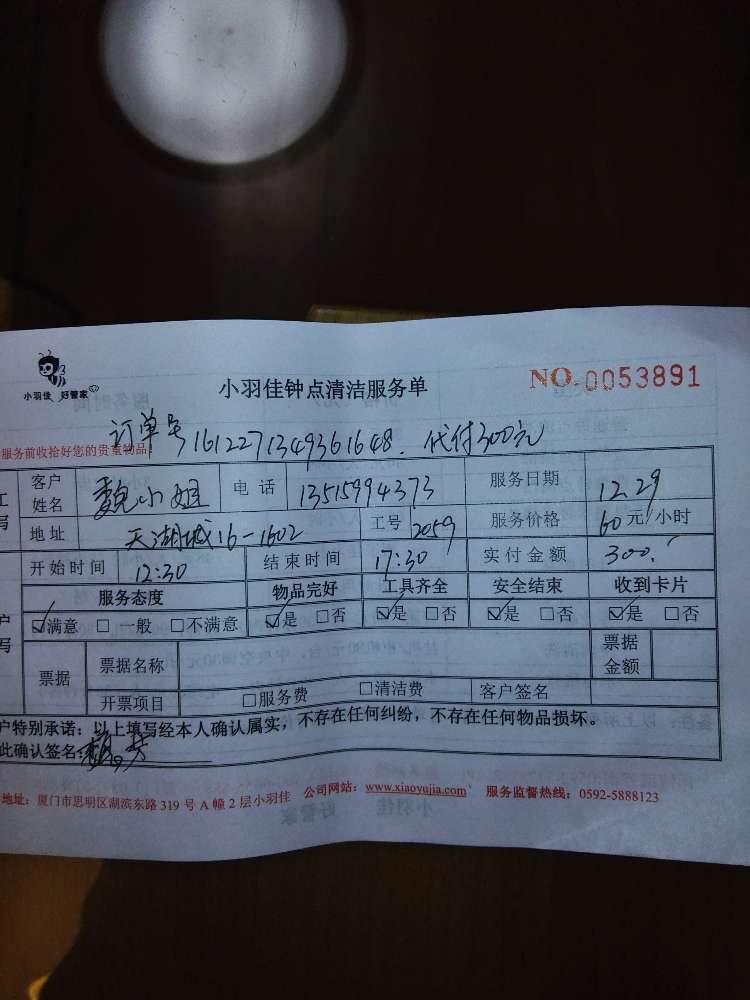 小羽佳 好管家
小羽佳钟点清洁服务单
NO.0053891
订单号161227134936 1648. 代付300元
服务前收拾好您的贵重物品!
客户姓名 魏小姐 电话 13515994373 服务日期 12.29
地址 天湖城16-1602 工号 2059 服务价格 60元/小时
开始时间 12:30 结束时间 17:30 实付金额 300.
服务态度 物品完好 工具齐全 安全结束 收到卡片
☑满意 □一般 □不满意 ☑是 □否 ☑是 □否 ☑是 □否 ☑是 □否
票据 票据名称 票据金额
开票项目 □服务费 □清洁费 客户签名
户特别承诺：以上填写经本人确认属实，不存在任何纠纷，不存在任何物品损坏。
此确认签名:
地址：厦门市思明区湖滨东路319号A幢2层小羽佳 公司网站：www.xiaoyujia.com 服务监督热线：0592-5888123